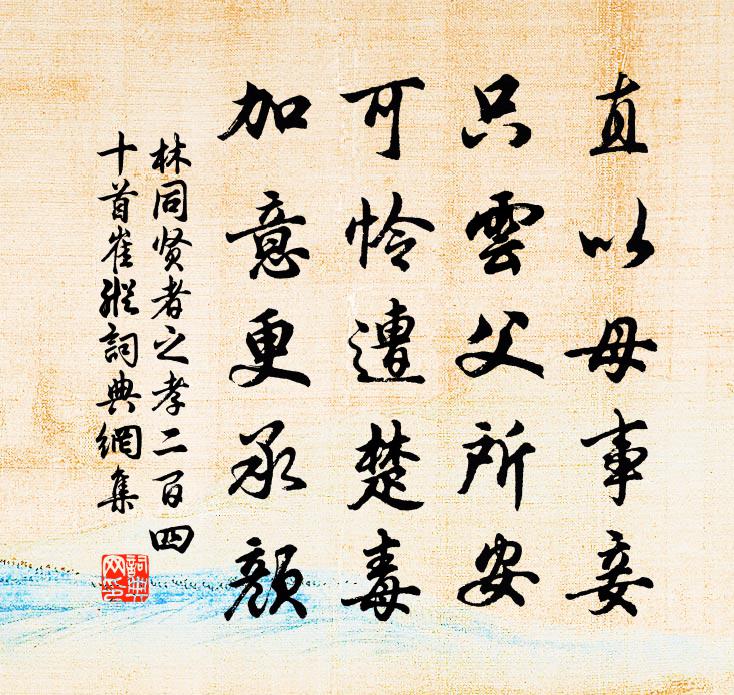 直以母事妾
只雲父所安
可怜遭楚毒
加意更承顔
林同贤者之孝二百四
十首崔縱詞典網集
詞典网印